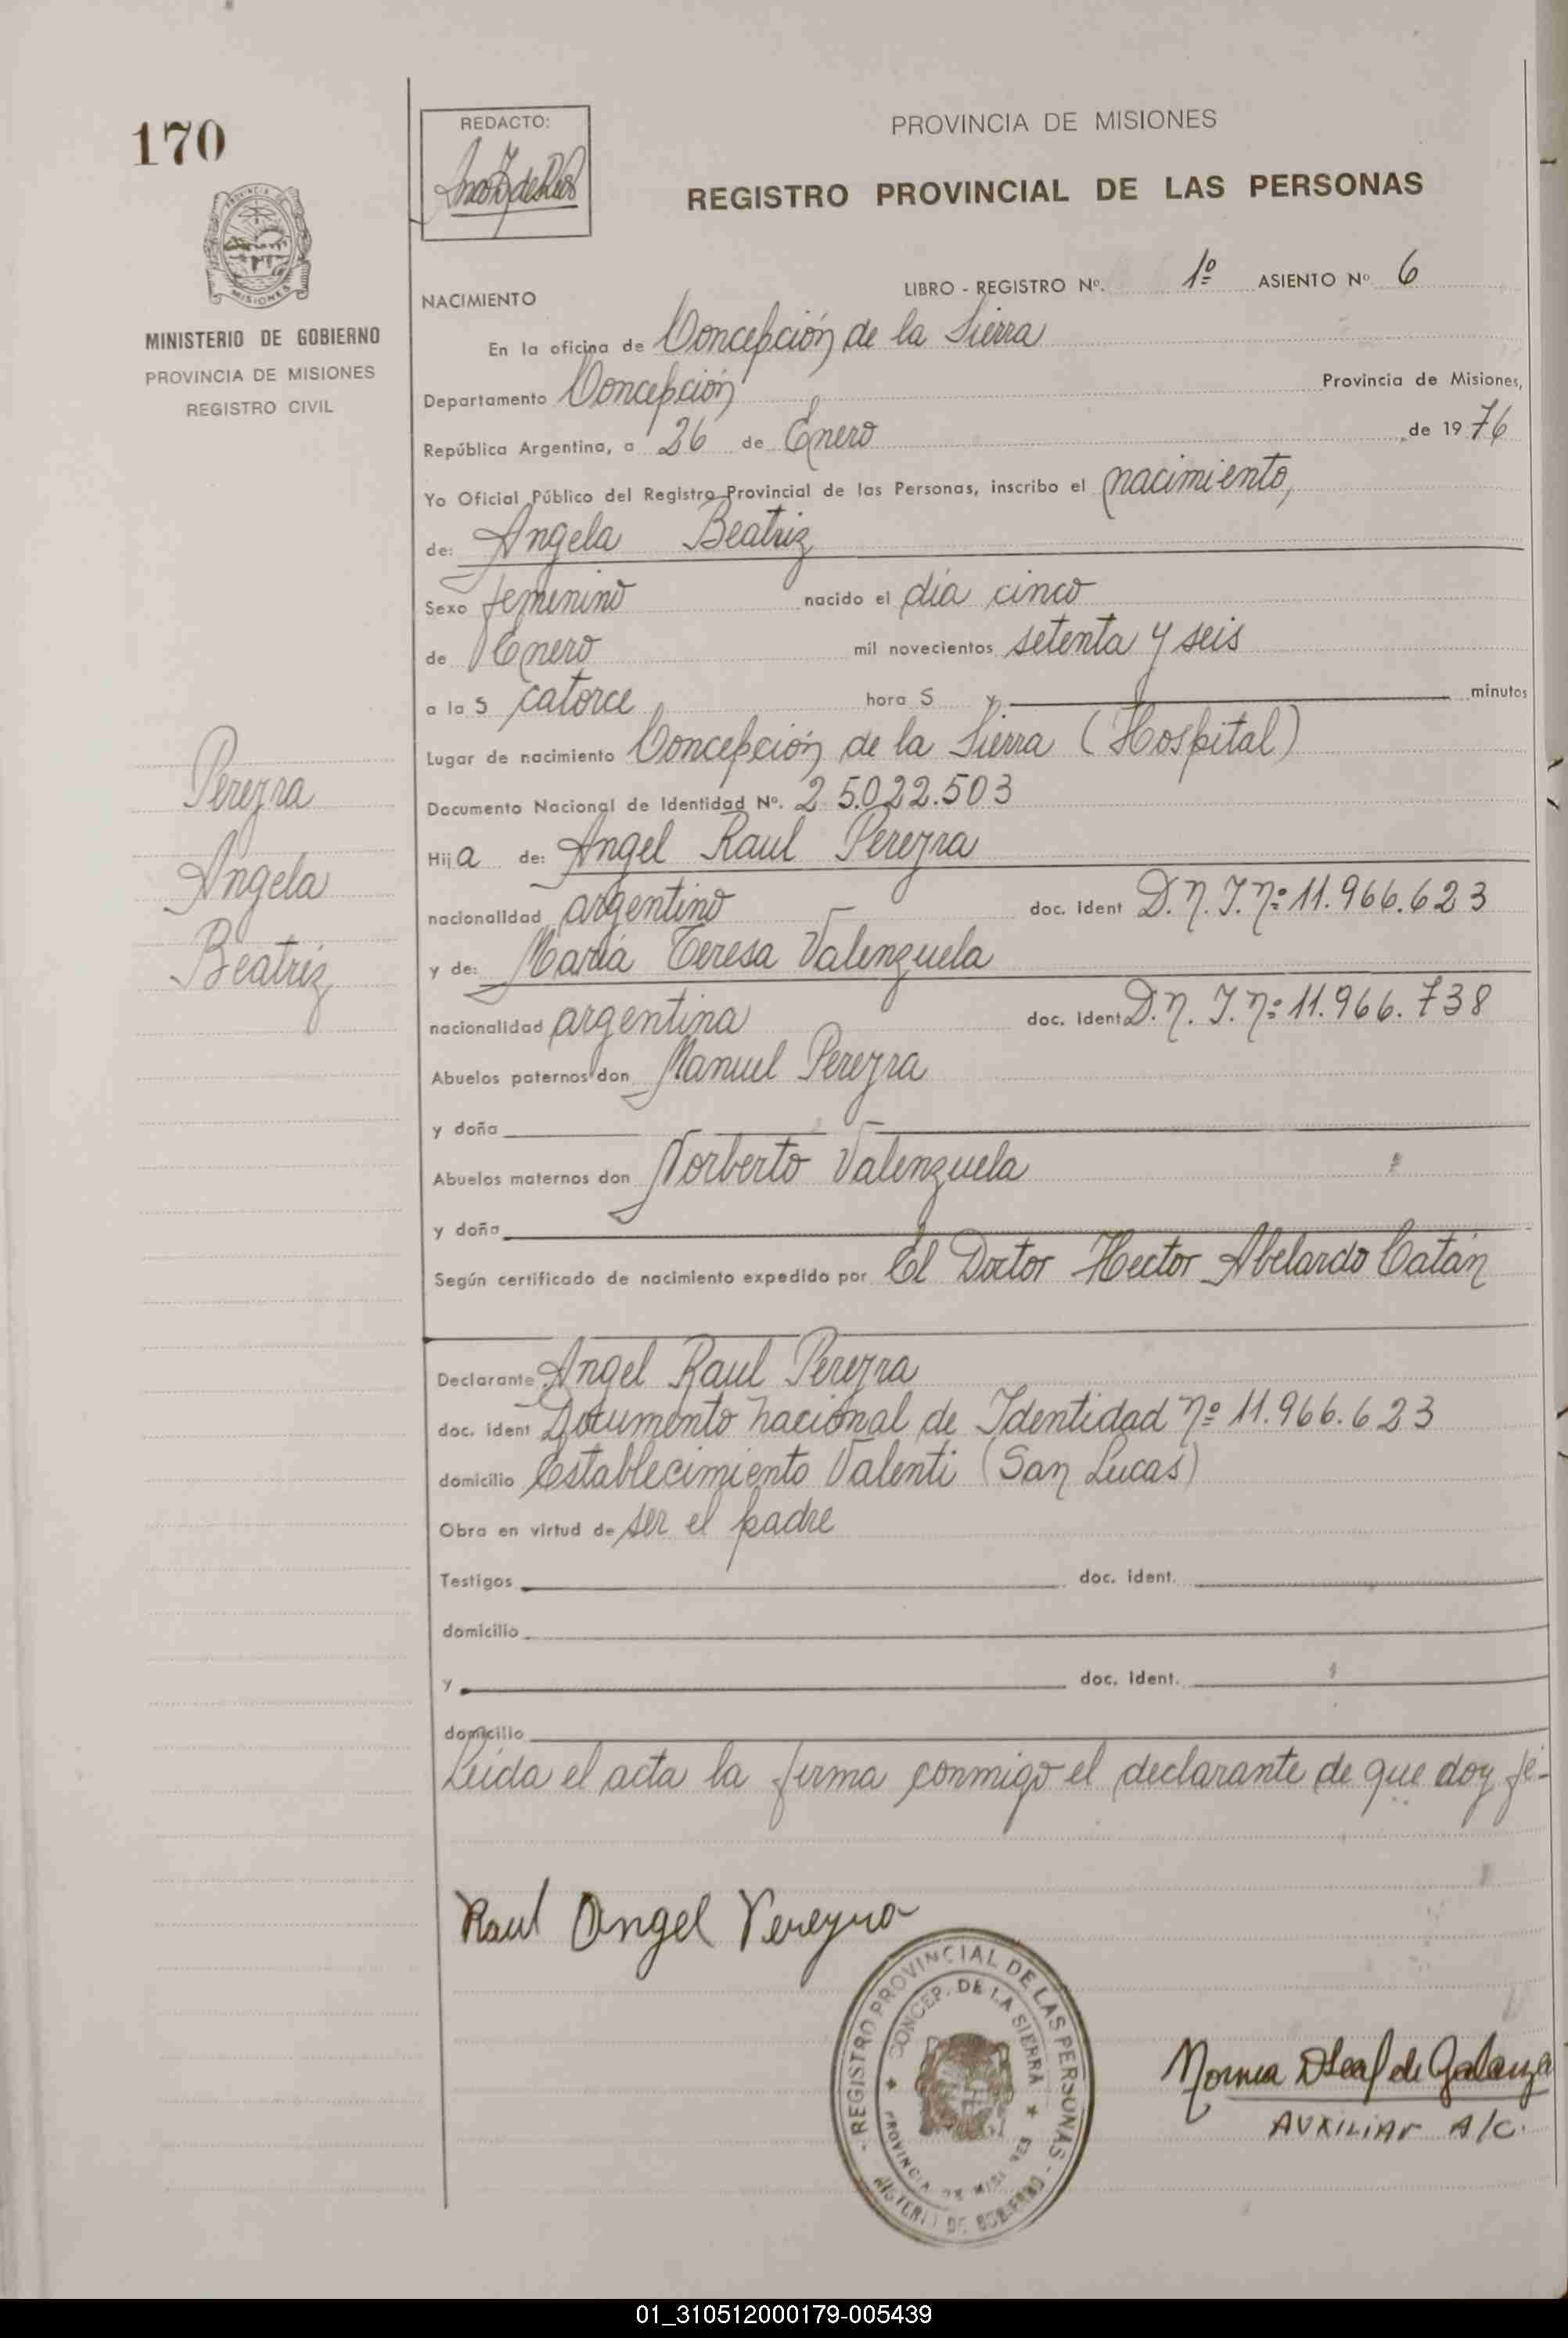 170
REDACTO:
PROVINCIA DE MISIONES
REGISTRO PROVINCIAL DE LAS PERSONAS
MISIONES
MINISTERIO DE GOBIERNO
PROVINCIA DE MISIONES
REGISTRO CIVIL
LIBRO - REGISTRO Nº. 1º ASIENTO Nº 6
NACIMIENTO
En la oficina de Concepción de la Sierra
Departamento Concepción Provincia de Misiones,
República Argentina, a 26 de Enero de 1976
Yo Oficial Público del Registro Provincial de las Personas, inscribo el nacimiento,
de: Angela Beatriz
Sexo femenino nacido el día cinco
de Enero mil novecientos setenta y seis
a la s catorce hora s y minutos
Lugar de nacimiento Concepción de la Sierra (Hospital)
Documento Nacional de Identidad Nº. 25.022.503
Hija de: Angel Raul Pereyra
nacionalidad argentino doc. ident D.N.I. Nº 11.966.623
y de: María Teresa Valenzuela
nacionalidad argentina doc. ident D.N.I. Nº 11.966.738
Abuelos paternos don Manuel Pereyra
y doña
Abuelos maternos don Norberto Valenzuela
y doña
Según certificado de nacimiento expedido por El Doctor Hector Abelardo Catán
Declarante Angel Raul Pereyra
doc. ident Documento nacional de Identidad nº 11.966.623
domicilio Establecimiento Valenti (San Lucas)
Obra en virtud de ser el padre
Testigos doc. ident.
domicilio
y doc. ident.
domicilio
Leida el acta la firma conmigo el declarante de que doy fé-
Pereyra
Angela
Beatriz
Raul Angel Pereyra
- REGISTRO PROVINCIAL DE LAS PERSONAS -
CONCEP. DE LA SIERRA
PROVINCIA DE MISIONES
MINISTERIO DE GOBIERNO
Norma de Galarza
AUXILIAR A/C.
01_310512000179-005439